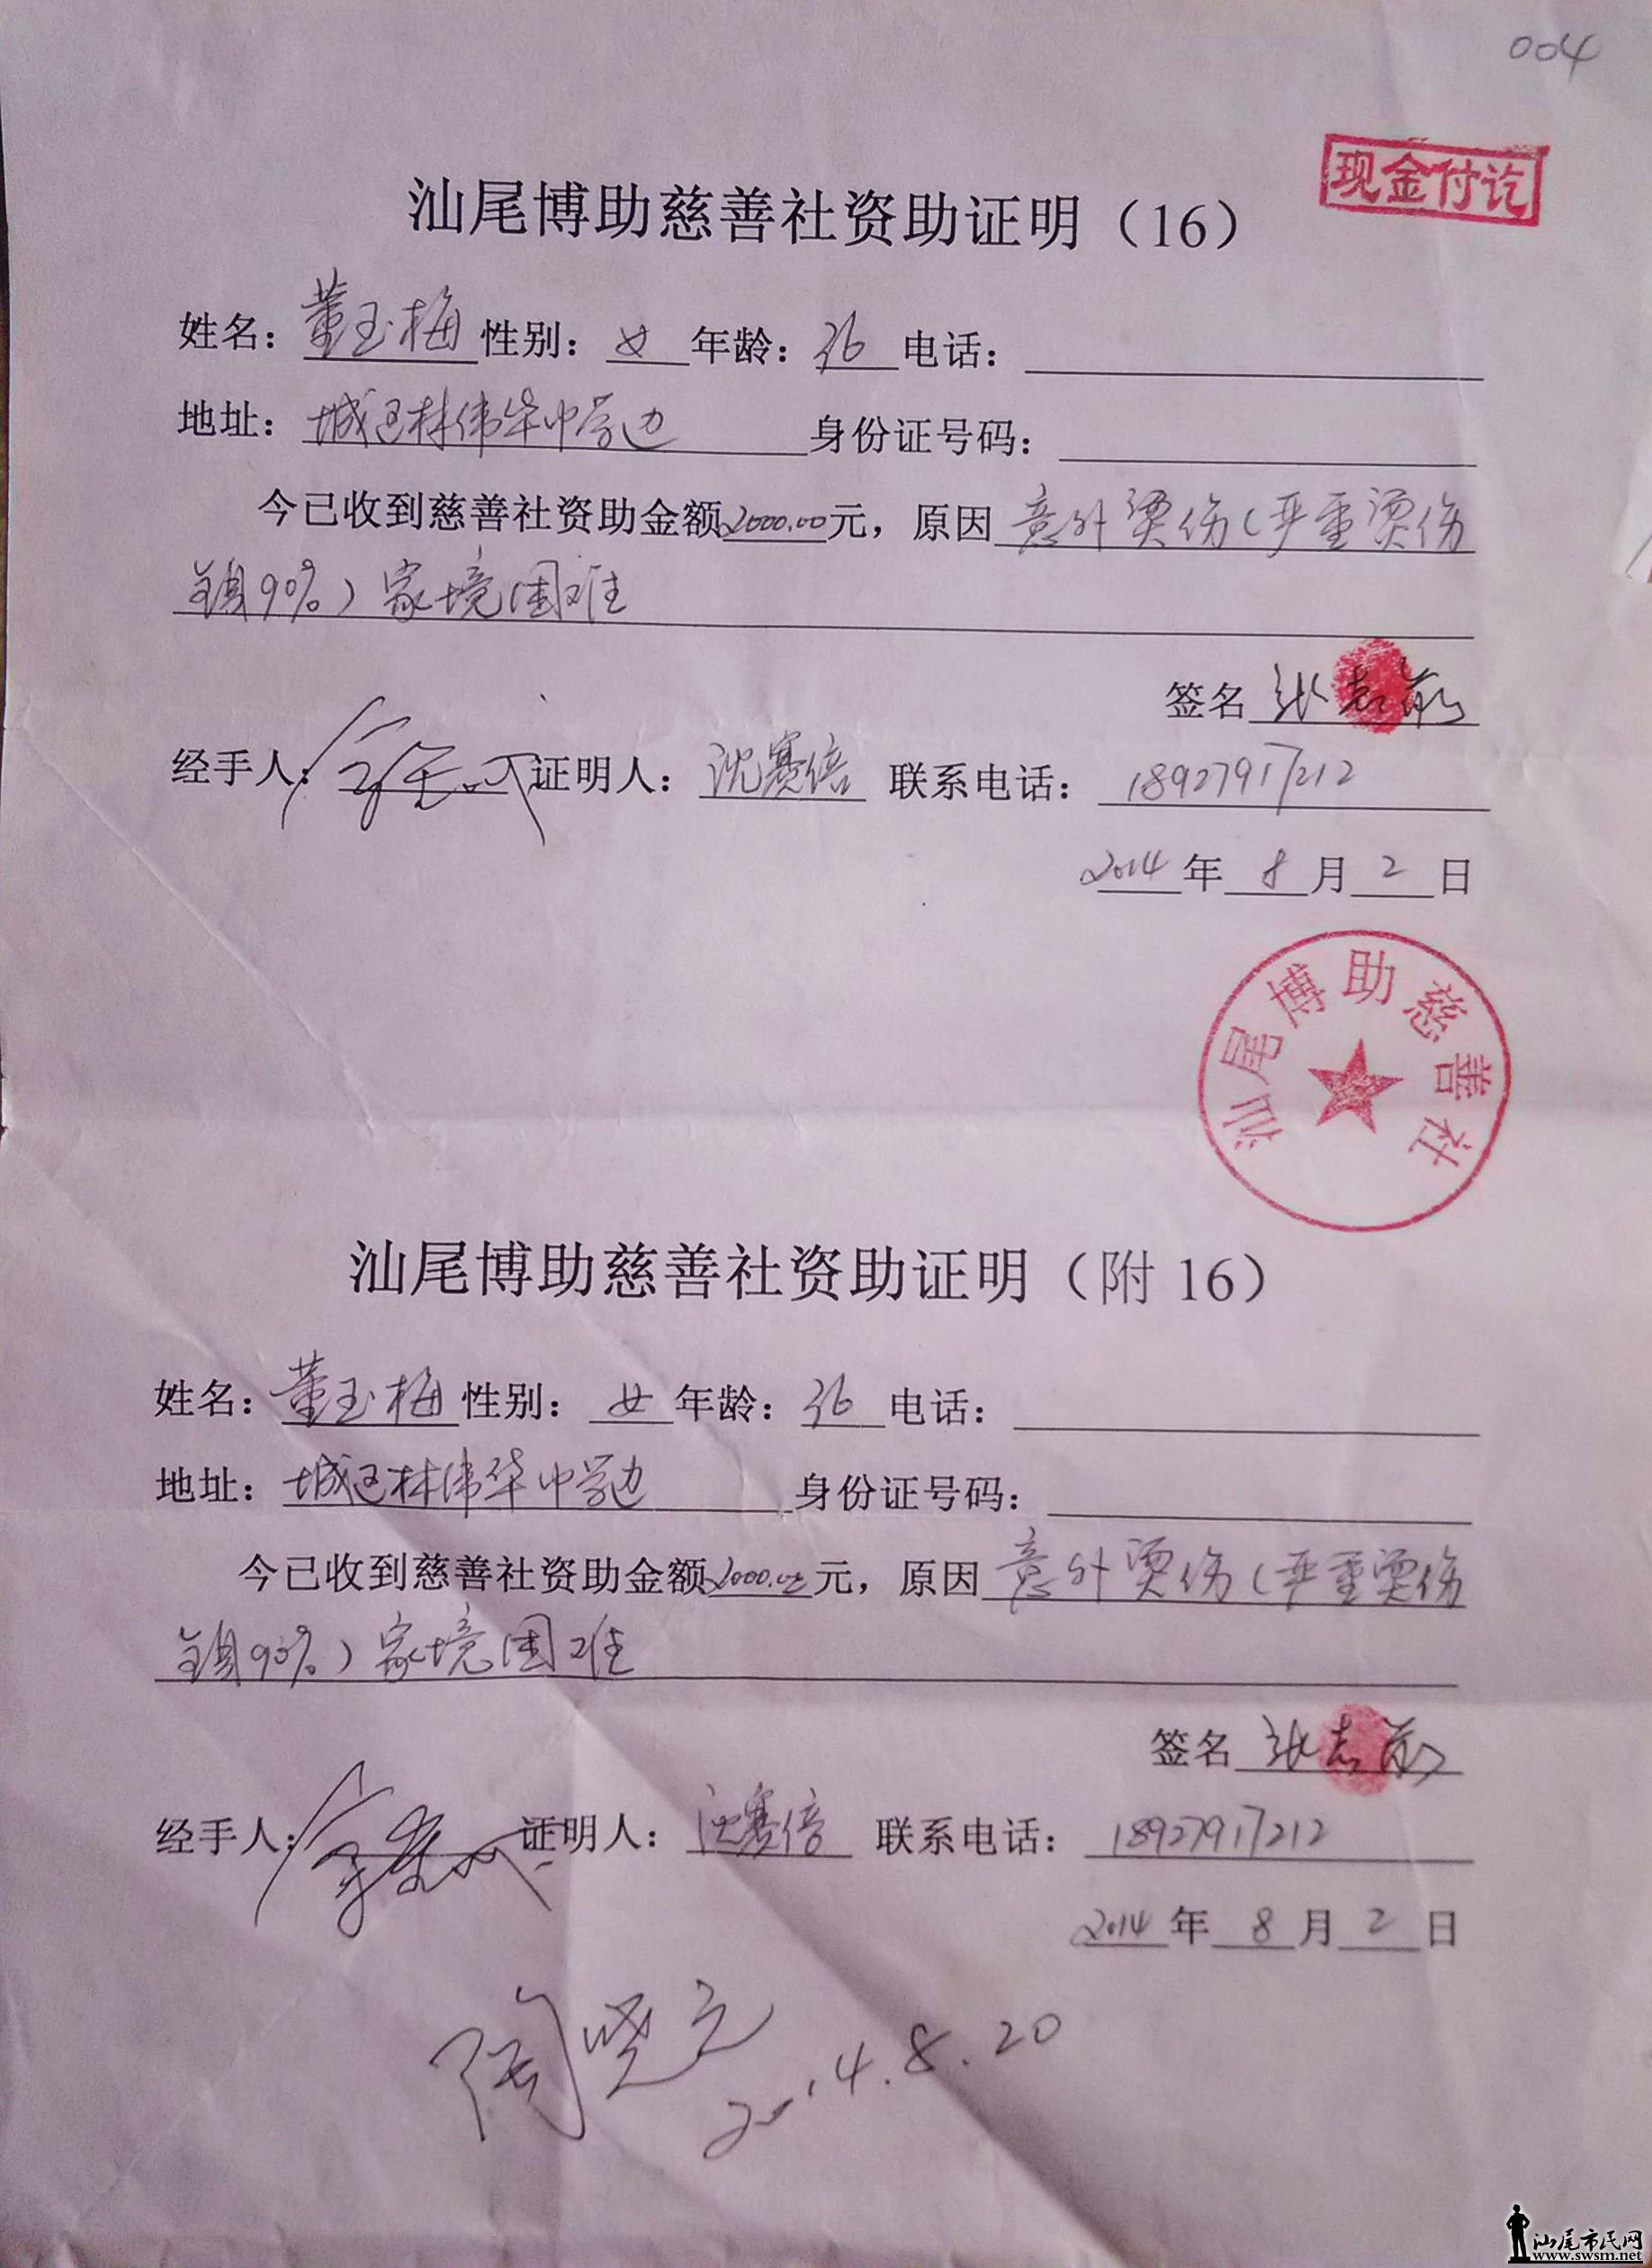 004
现金付讫
汕尾博助慈善社资助证明（16）
姓名：董玉梅 性别：女 年龄：36 电话：
地址：城区林伟华中学边 身份证号码：
今已收到慈善社资助金额2000.00元，原因 意外烫伤（严重烫伤
90%）家境困难
签名 张志
经手人： 证明人：沈赛倍 联系电话：18927917212
2014 年 8 月 2 日
汕尾博助慈善社
汕尾博助慈善社资助证明（附 16）
姓名：董玉梅 性别：女 年龄：36 电话：
地址：城区林伟华中学边 身份证号码：
今已收到慈善社资助金额2000.00元，原因 意外烫伤（严重烫伤
90%）家境困难
签名 张志
经手人： 证明人：沈赛倍 联系电话：18927917212
2014 年 8 月 2 日
陶晓立
2014.8.20
汕尾市民网
www.swsm.net